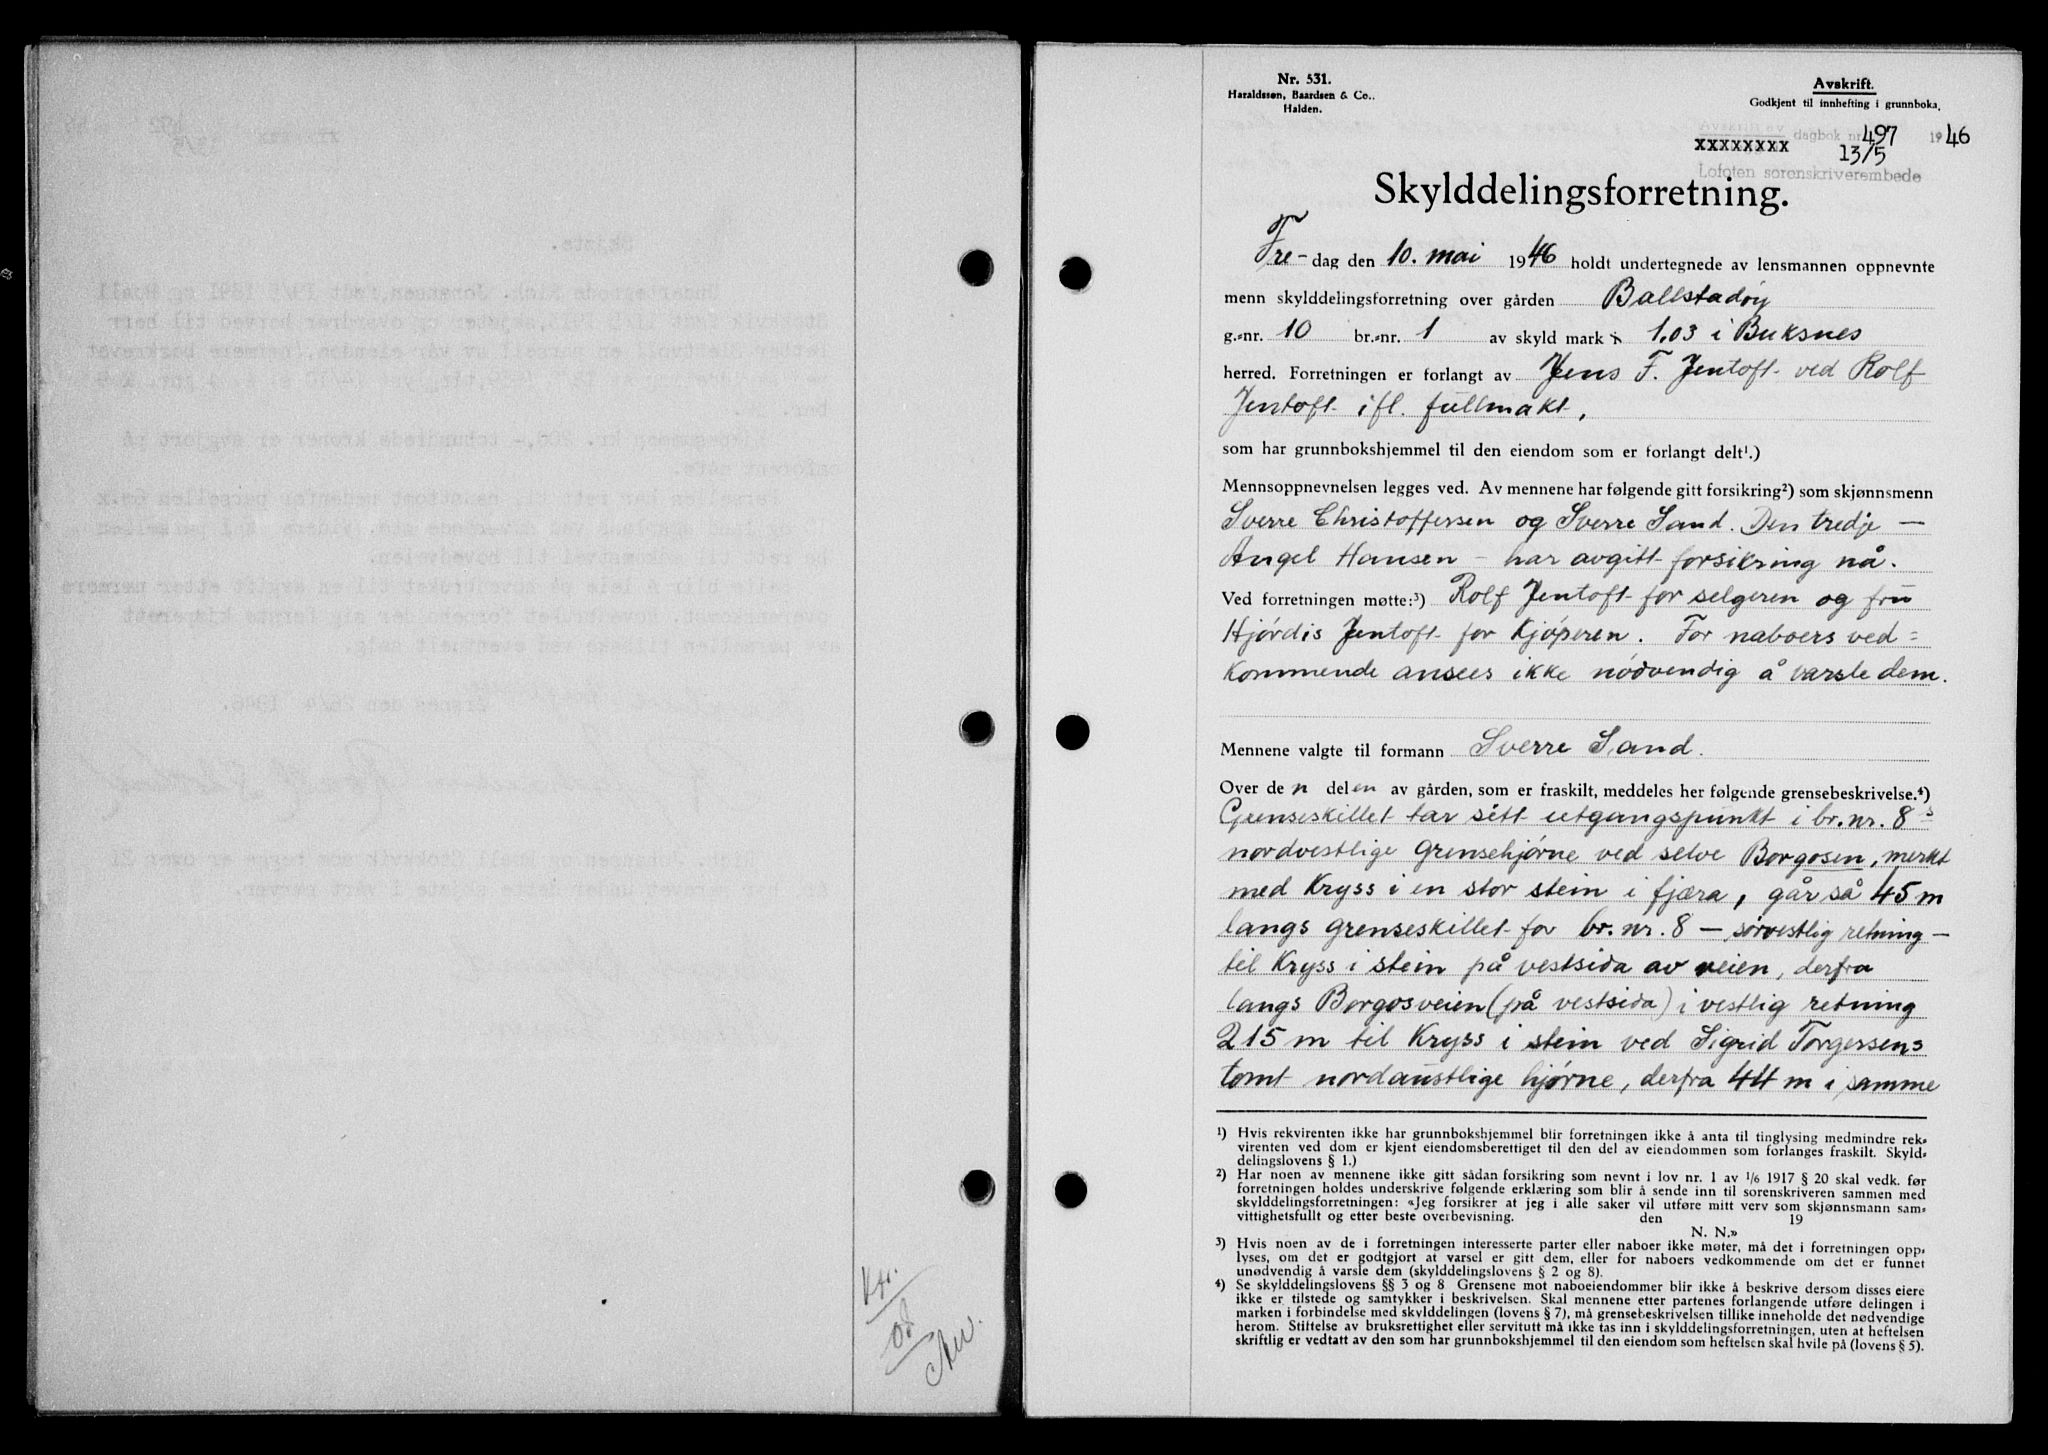 Nr. 531.
Haraldssøn, Baardsen & Co..
Halden.
Avskrift.
Godkjent til innhefting i grunnboka.
Avskrift av dagbok nr. 497 1946
xxxxxxxx 13/5
Lofoten sorenskriverembede
Skylddelingsforretning.
Fre-dag den 10. mai 1946 holdt undertegnede av lensmannen oppnevnte
menn skylddelingsforretning over gården Ballstadøy
g.-nr. 10 br.-nr. 1 av skyld mark 1.03 i Buksnes
herred. Forretningen er forlangt av Jens F. Jentoft ved Rolf
Jentoft ifl. fullmakt,
som har grunnbokshjemmel til den eiendom som er forlangt delt¹.)
Mennsoppnevnelsen legges ved. Av mennene har følgende gitt forsikring²) som skjønnsmenn
Sverre Christoffersen og Sverre Sand. Den tredje —
Angel Hansen — har avgitt forsikring nå.
Ved forretningen møtte:³) Rolf Jentoft for selgeren og fru
Hjördis Jentoft for Kjøperen. For naboers ved=
kommende ansees ikke nødvendig å varsle dem.
Mennene valgte til formann Sverre Sand.
Over den delen av gården, som er fraskilt, meddeles her følgende grensebeskrivelse.⁴)
Grenseskillet tar sitt utgangspunkt i br.nr. 8s
nordvestlige grensehjørne ved selve Borgosen, merkt
med Kryss i en stor stein i fjæra, går så 45 m
langs grenseskillet for br. nr. 8 — sørvestlig retning —
til Kryss i stein på vestsida av veien, derfra
langs Borgosveien (på vestsida) i vestlig retning
215 m til Kryss i stein ved Sigrid Torgersens
tomt nordaustlige hjørne, derfra 44 m i samme
¹) Hvis rekvirenten ikke har grunnbokshjemmel blir forretningen ikke å anta til tinglysing medmindre rek-
virenten ved dom er kjent eiendomsberettiget til den del av eiendommen som forlanges fraskilt. Skyld-
delingslovens § 1.)
²) Har noen av mennene ikke gitt sådan forsikring som nevnt i lov nr. 1 av 1/6 1917 § 20 skal vedk. før
forretningen holdes underskrive følgende erklæring som blir å sende inn til sorenskriveren sammen med
skylddelingsforretningen: «Jeg forsikrer at jeg i alle saker vil utføre mitt verv som skjønnsmann sam-
vittighetsfullt og etter beste overbevisning. den 19
N. N.»
³) Hvis noen av de i forretningen interesserte parter eller naboer ikke møter, må det i forretningen opp-
lyses, om det er godtgjort at varsel er gitt dem, eller for naboers vedkommende om det er funnet
unødvendig å varsle dem (skylddelingslovens § 2 og 8).
⁴) Se skylddelingslovens §§ 3 og 8 Grensene mot naboeiendommer blir ikke å beskrive dersom disses eiere
ikke er tilstede og samtykker i beskrivelsen. Skal mennene etter partenes forlangende utføre delingen i
marken i forbindelse med skylddelingen (lovens § 7), må grensebeskrivelsen tillike inneholde det nødvendige
herom. Stiftelse av bruksrettighet eller servitutt må ikke tas inn i skylddelingsforretningen, uten at heftelsen
skriftlig er vedtatt av den som har grunnbokshjemmel til den eiendom som heftelsen skal hvile på (lovens § 5).